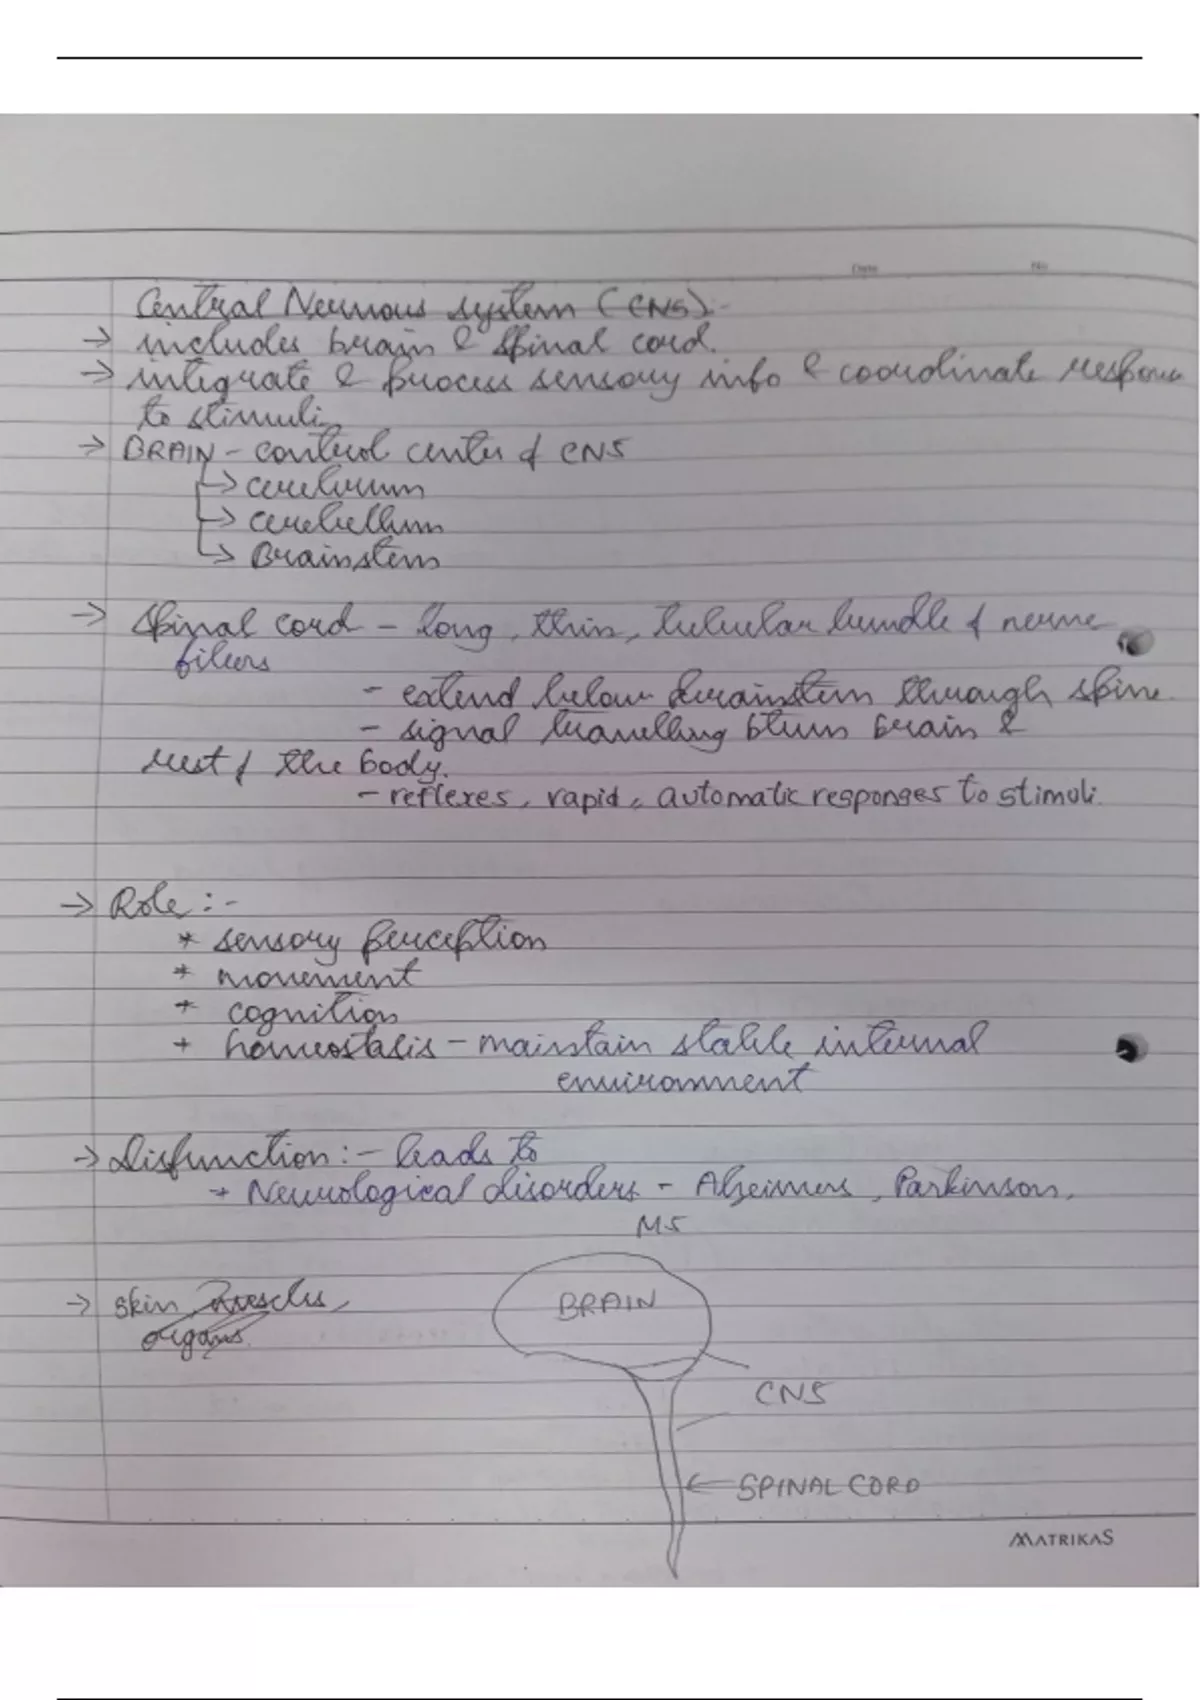 Date No
Central Nervous system (CNS):-
→ includes brain & spinal cord.
→ integrate & process sensory info & coordinate respons
to stimuli
→ BRAIN - control center of CNS
→ cerebrum
→ cerebellum
→ Brainstem
→ Spinal cord - long, thin, tubular bundle of nerve
fibers
- extend below brainstem through spine
- signal travelling btwn brain &
rest of the body.
- reflexes, rapid, automatic responses to stimuli.
→ Role :-
* sensory perception
* movement
* cognition
* homeostasis - maintain stable internal
environment
→ Disfunction :- leads to
→ Neurological disorders - Alzeimers, Parkinson,
MS
→ skin muscles,
organs.
BRAIN
CNS
← SPINAL CORD
MATRIKAS